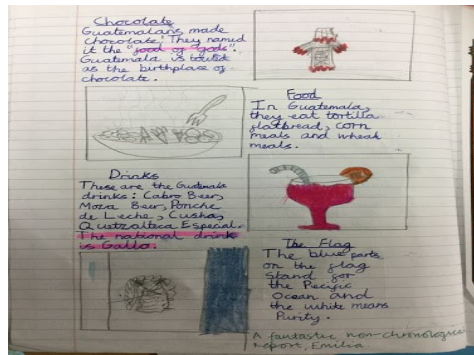 Chocolate
Guatemalans made
chocolate! They named
it the "food of gods".
Guatemala is toutet
as the birthplace of
chocolate.
Food
In Guatemala,
they eat tortilla
flatbread, corn
meals and wheat
meals.
Drinks
These are the Guatemala
drinks: Cabro Beer,
Moza Beer, Ponche
de Leche, Cusha,
Quetzalteca Especial.
The national drink
is Gallo.
The Flag
The blue parts
on the flag
stand for
the Pacific
Ocean and
the white means
Purity.
A fantastic non-chronological
report, Emilia.